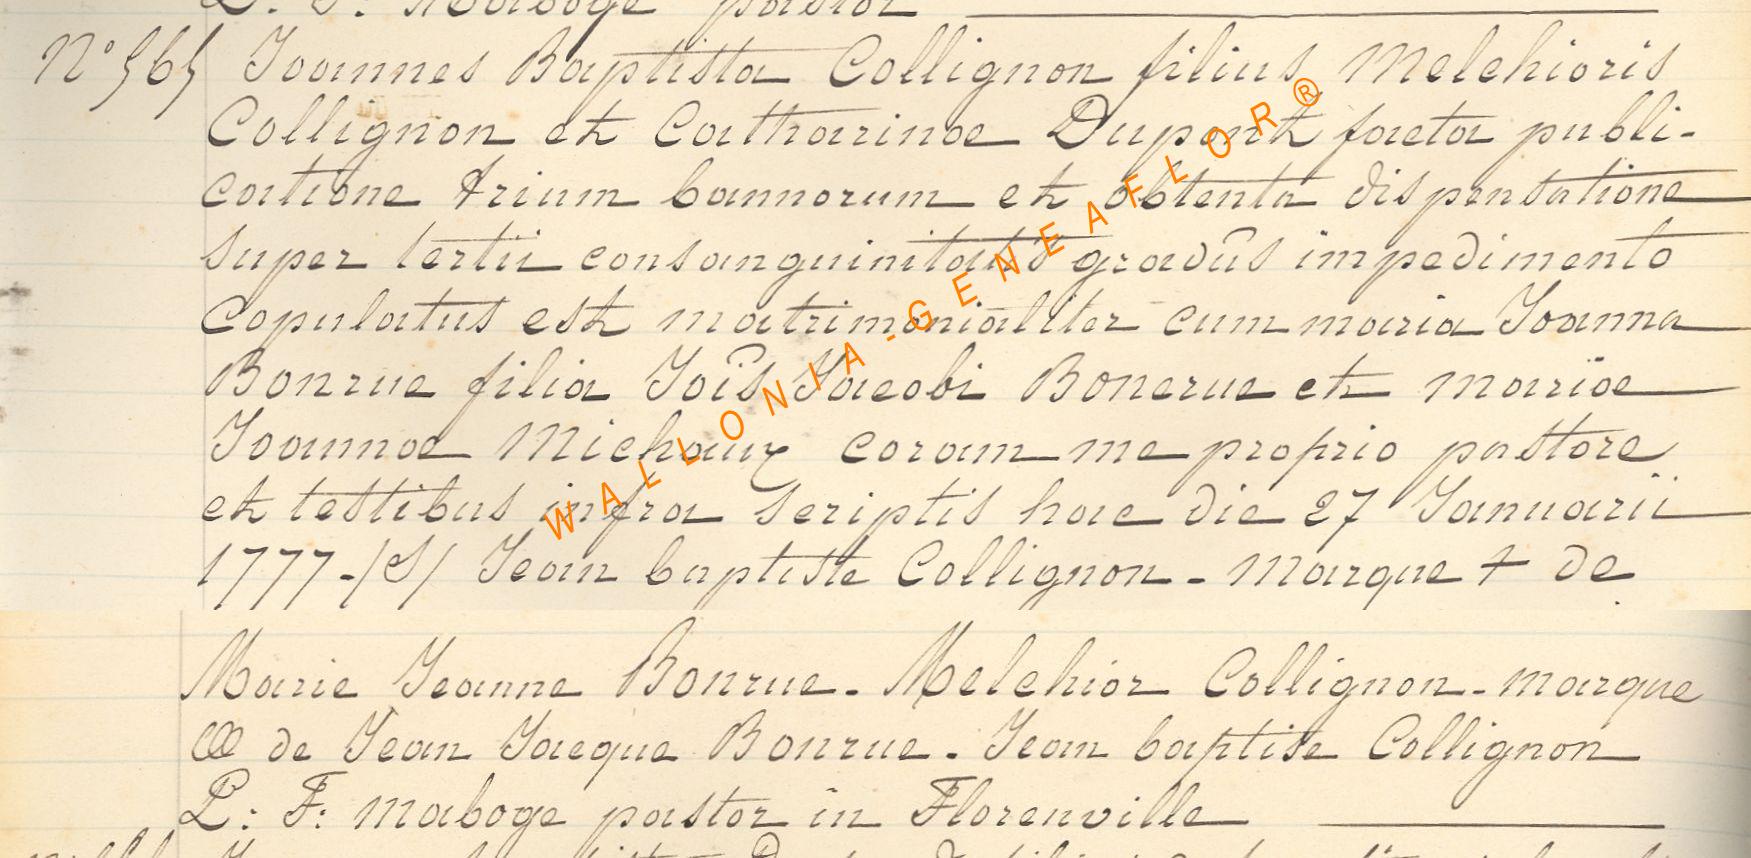 L. F. Maboge pastor
N° 565 Joannes Baptista Collignon filius Melchioris
Collignon et Catharinae Dupont facta publi-
catione trium bannorum et obtenta dispensatione
super tertii consanguinitatis gradûs impedimento
copulatus est matrimonialiter cum maria Joanna
Bonrue filia Joîs Jacobi Bonerue et mariae
Joannae Michaux coram me proprio pastore
et testibus infra scriptis hac die 27 Januarii
1777-(S) Jean baptiste Collignon - marque + de
Marie Jeanne Bonrue. Melchior Collignon - marque
de Jean Jacque Bonrue. Jean baptiste Collignon
L: F: maboge pastor in Florenville
WALLONIA-GENEAFLOR®